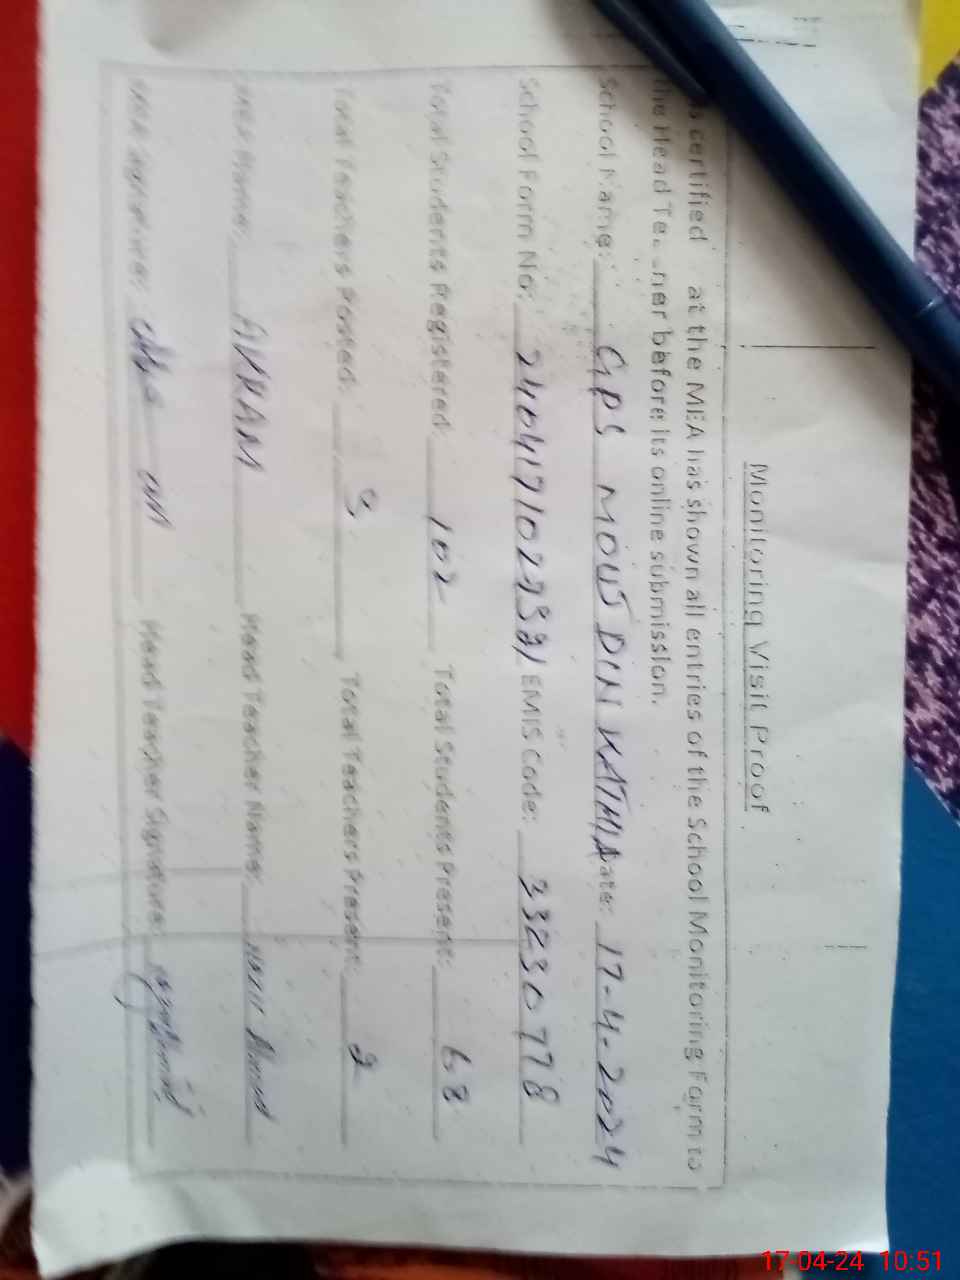 Monitoring Visit Proof
certified at the MEA has shown all entries of the School Monitoring Form to
the Head Te her before its online submission.
School Name: GPS MOUJ DIN KATHIA Date: 17-4-2024
School Form No: EMIS Code: 33230778
Total Students Registered: 102 Total Students Present: 68
Total Teachers Posted: 3 Total Teachers Present: 2
MEA Name: AKRAM Head Teacher Name:
MEA Signature: Head Teacher Signature:
17-04-24 10:51